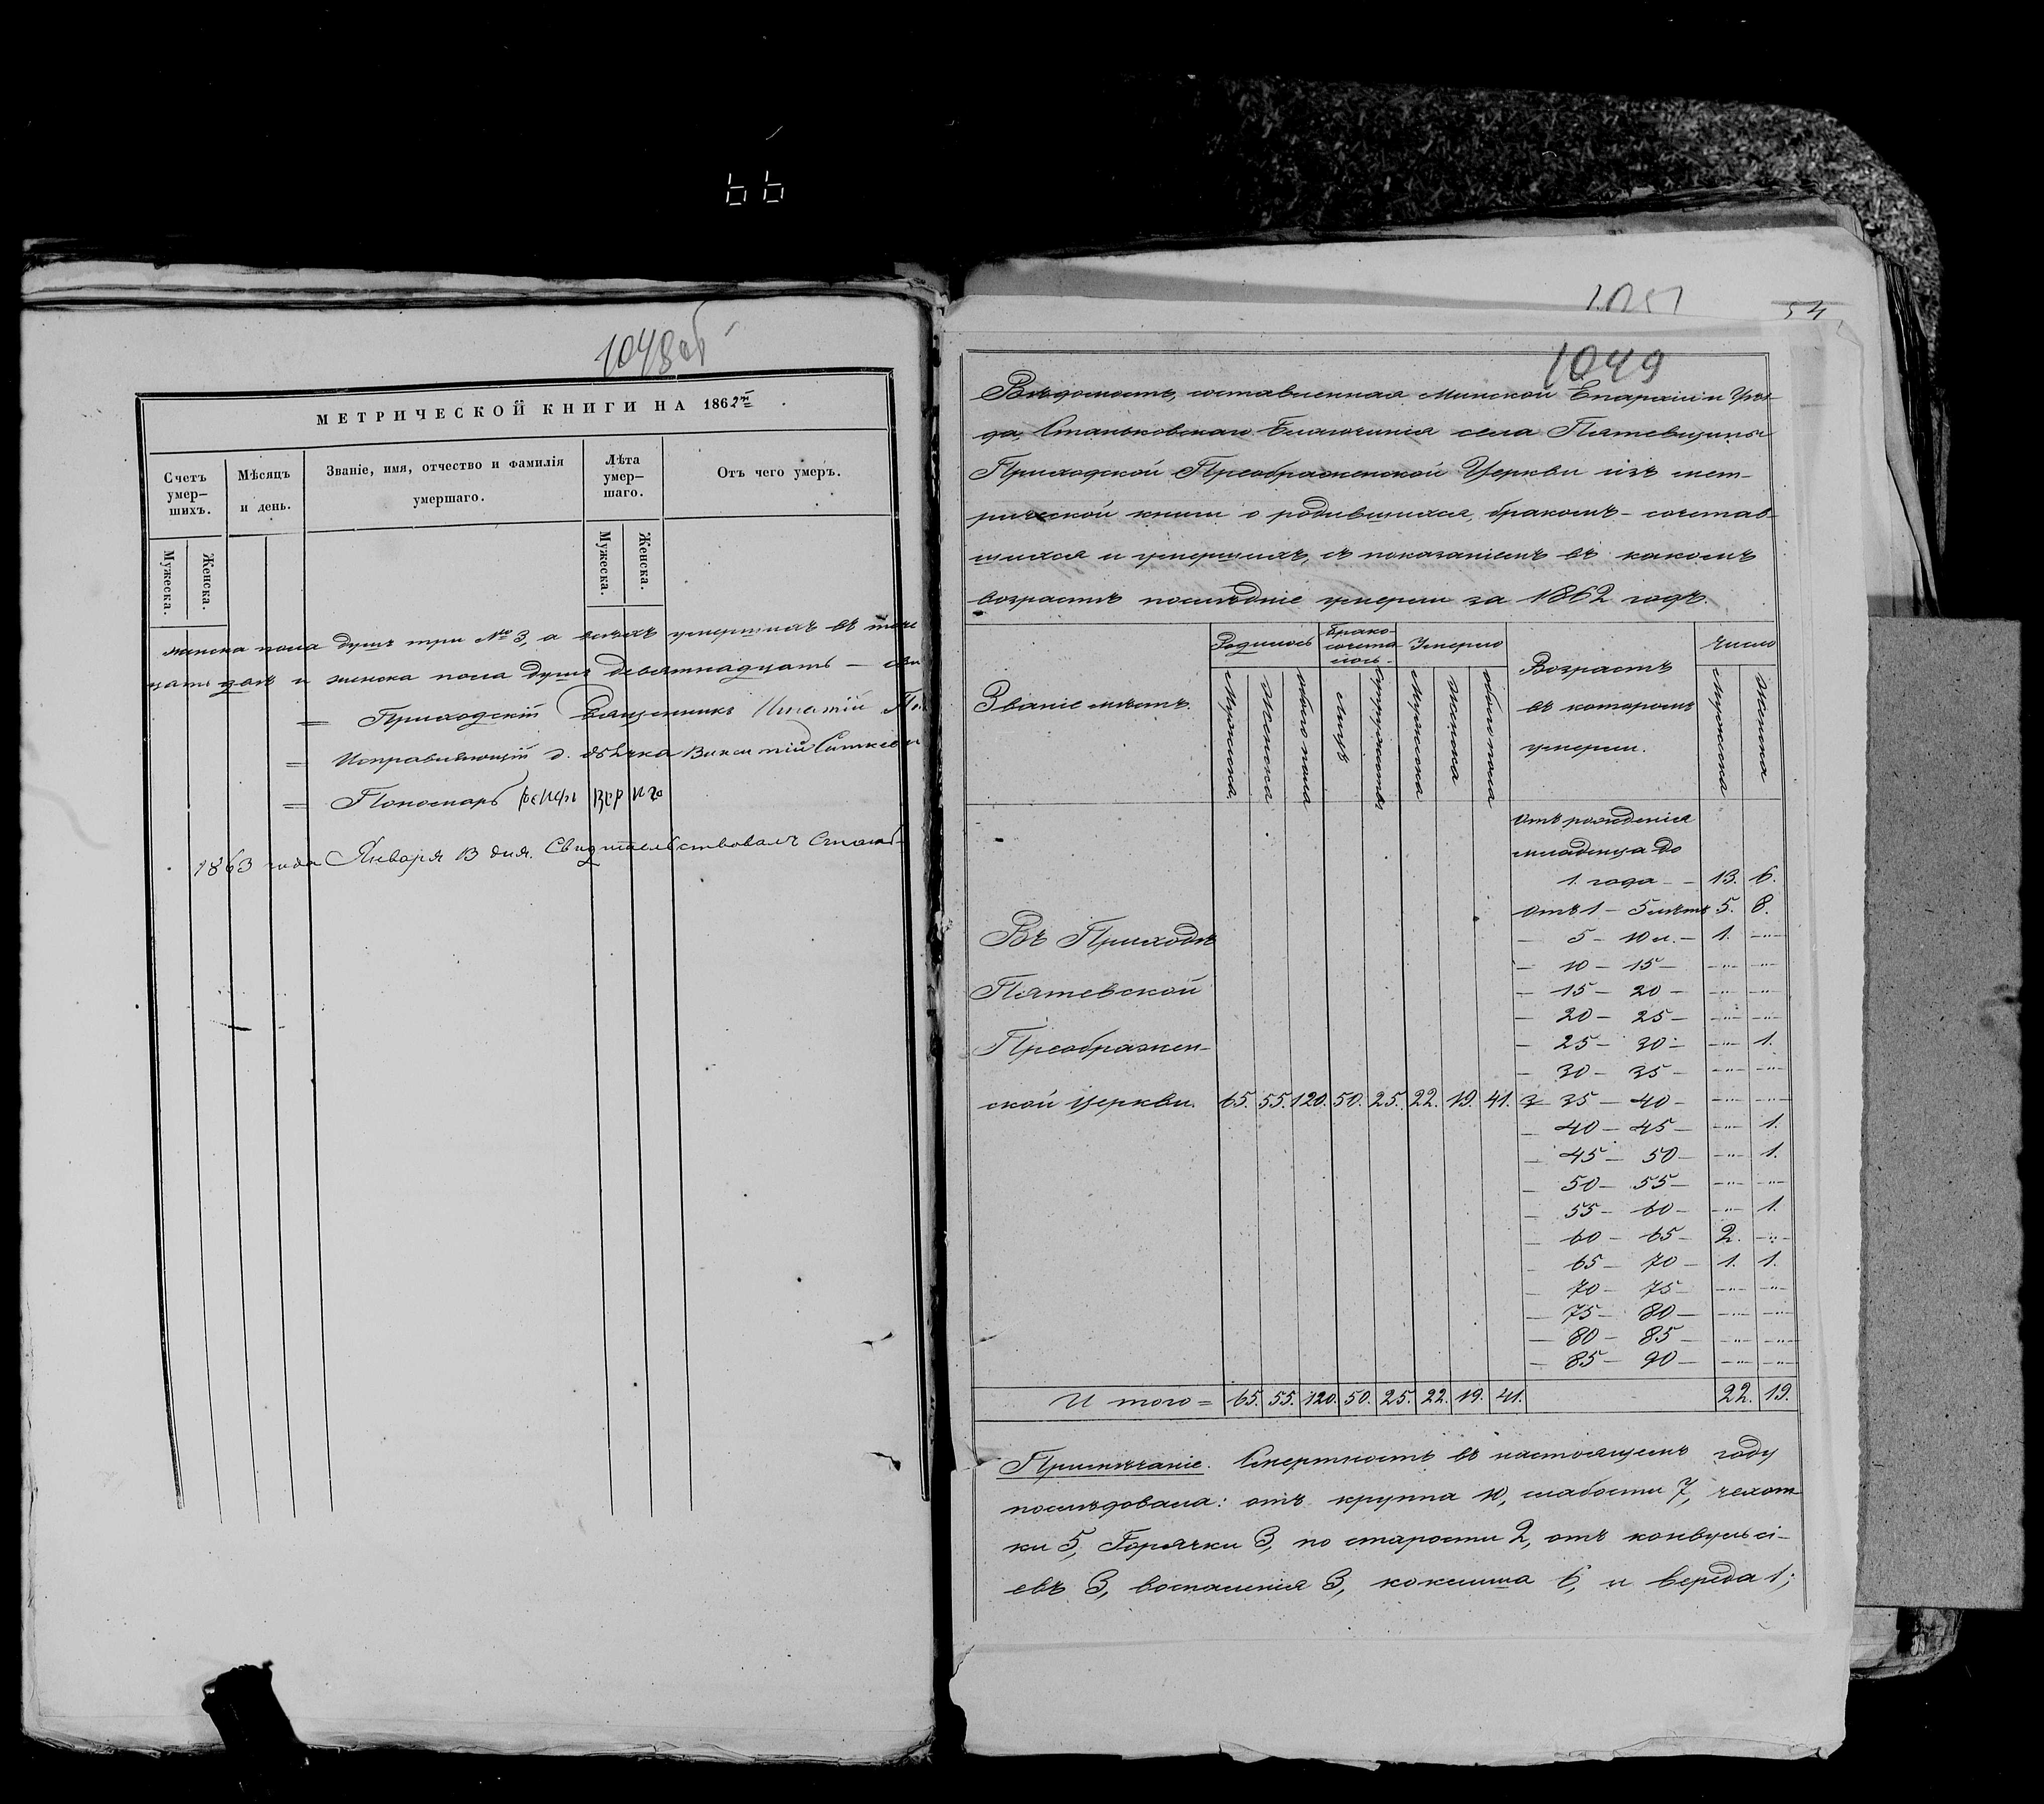 66
1048об
МЕТРИЧЕСКОЙ КНИГИ НА 1862й
Счетъ умер-шихъ.
Мѣсяцъ и день.
Званіе, имя, отчество и фамилія умершаго.
Лѣта умер-шаго.
Отъ чего умеръ.
Мужеска.
Женска.
Мужеска.
Женска.
женска пола душъ три № 3, а всѣхъ умершихъ въ
и женска пола душъ девятнадцать —
= Приходскій Священникъ Игнатій
= Исправляющій д. дьячка Викентій
= Пономарь
1863 года Января 13 дня. Свидѣтельствовалъ
1051
54
1049
Вѣдомость, составленная Минской Епархіи и Уѣз-
да, Станьковскаго Благочинія села Пятевщины
Приходской Преображенской Церкви изъ мет-
рической книги о родившихся, бракомъ-сочетав-
шихся и умершихъ, съ показаніемъ въ какомъ
возрастѣ послѣдніе умерли за 1862 годъ.
Званіе мѣстъ.
Родилось
Брако-сочета лось-
Умерло
Возрастъ въ которомъ умерли.
Число
Мужеска
Женска
обоего пола
Лицъ
Супружествъ
Мужеска
Женска
обоего пола
Мужеска
Женска
Отъ рожденія
младенца до
1. года — 13. 6.
Отъ 1 — 5 лѣтъ 5. 8.
Въ Приходѣ
— 5 — 10 л. — 1. —"—
— 10 — 15 — —"— —"—
Пятевской
— 15 — 20 — —"— —"—
— 20 — 25 — —"— —"—
Преображен-
— 25 — 30 — —"— 1.
— 30 — 35 — —"— —"—
ской Церкви. 65. 55. 120. 50. 25. 22. 19. 41. — 35 — 40 — —"— —"—
— 40 — 45 — —"— 1.
— 45 — 50 — —"— 1.
— 50 — 55 — —"— —"—
— 55 — 60 — —"— 1.
— 60 — 65 — 2. —"—
— 65 — 70 — 1. 1.
— 70 — 75 — —"— —"—
— 75 — 80 — —"— —"—
— 80 — 85 — —"— —"—
— 85 — 90 — —"— —"—
И того = 65. 55. 120. 50. 25. 22. 19. 41. 22. 19.
Примѣчаніе. Смертность въ настоящемъ году
послѣдовала: отъ круппа 10, слабости 7, чехот-
ки 5, Горячки 3, по старости 2, отъ конвульсі-
евъ 3, воспаленія 3, коклиша 6, и вереда 1;